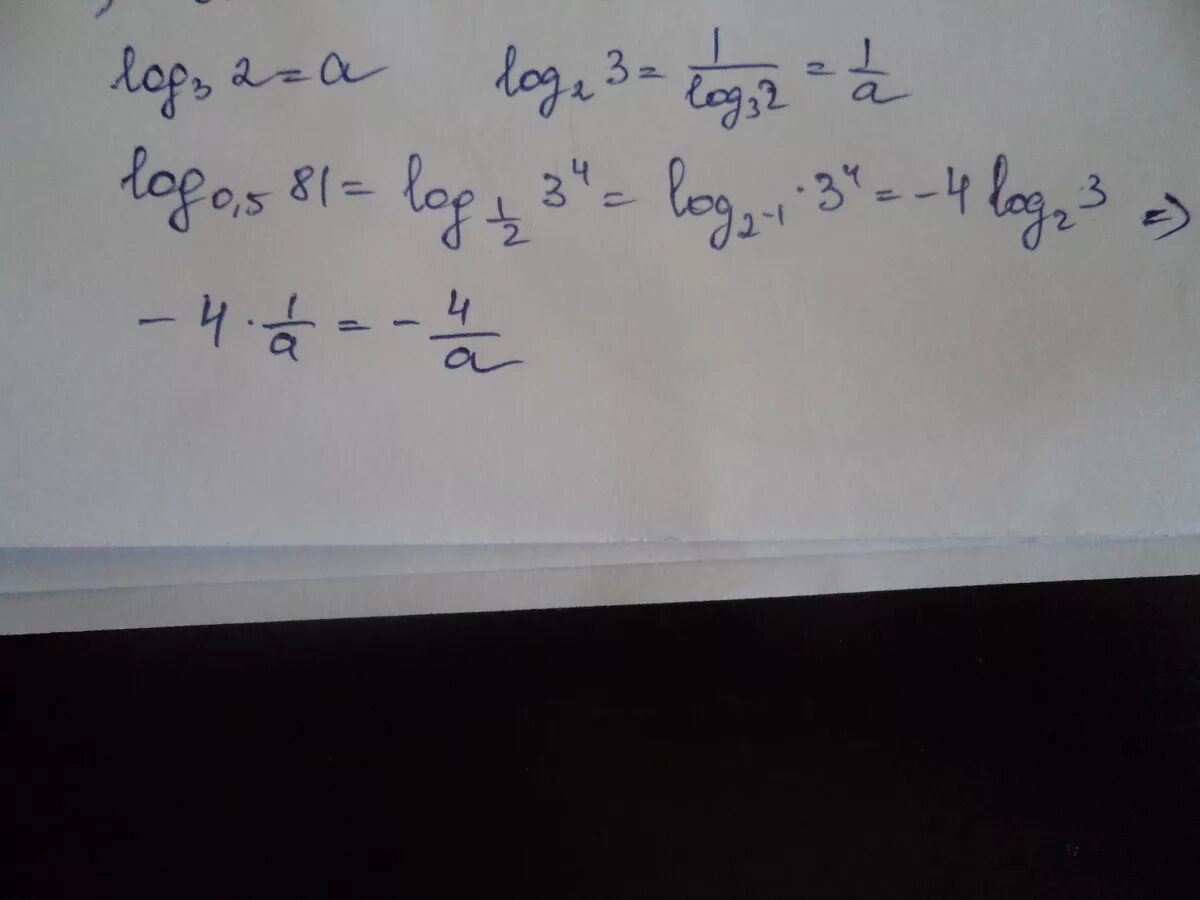 log₃ 2 = a     log₂ 3 = 1/log₃2 = 1/a
log₀,₅ 81 = log_{1/2} 3⁴ = log_{2⁻¹} · 3⁴ = -4 log₂ 3 ⇒
- 4 · 1/a = - 4/a